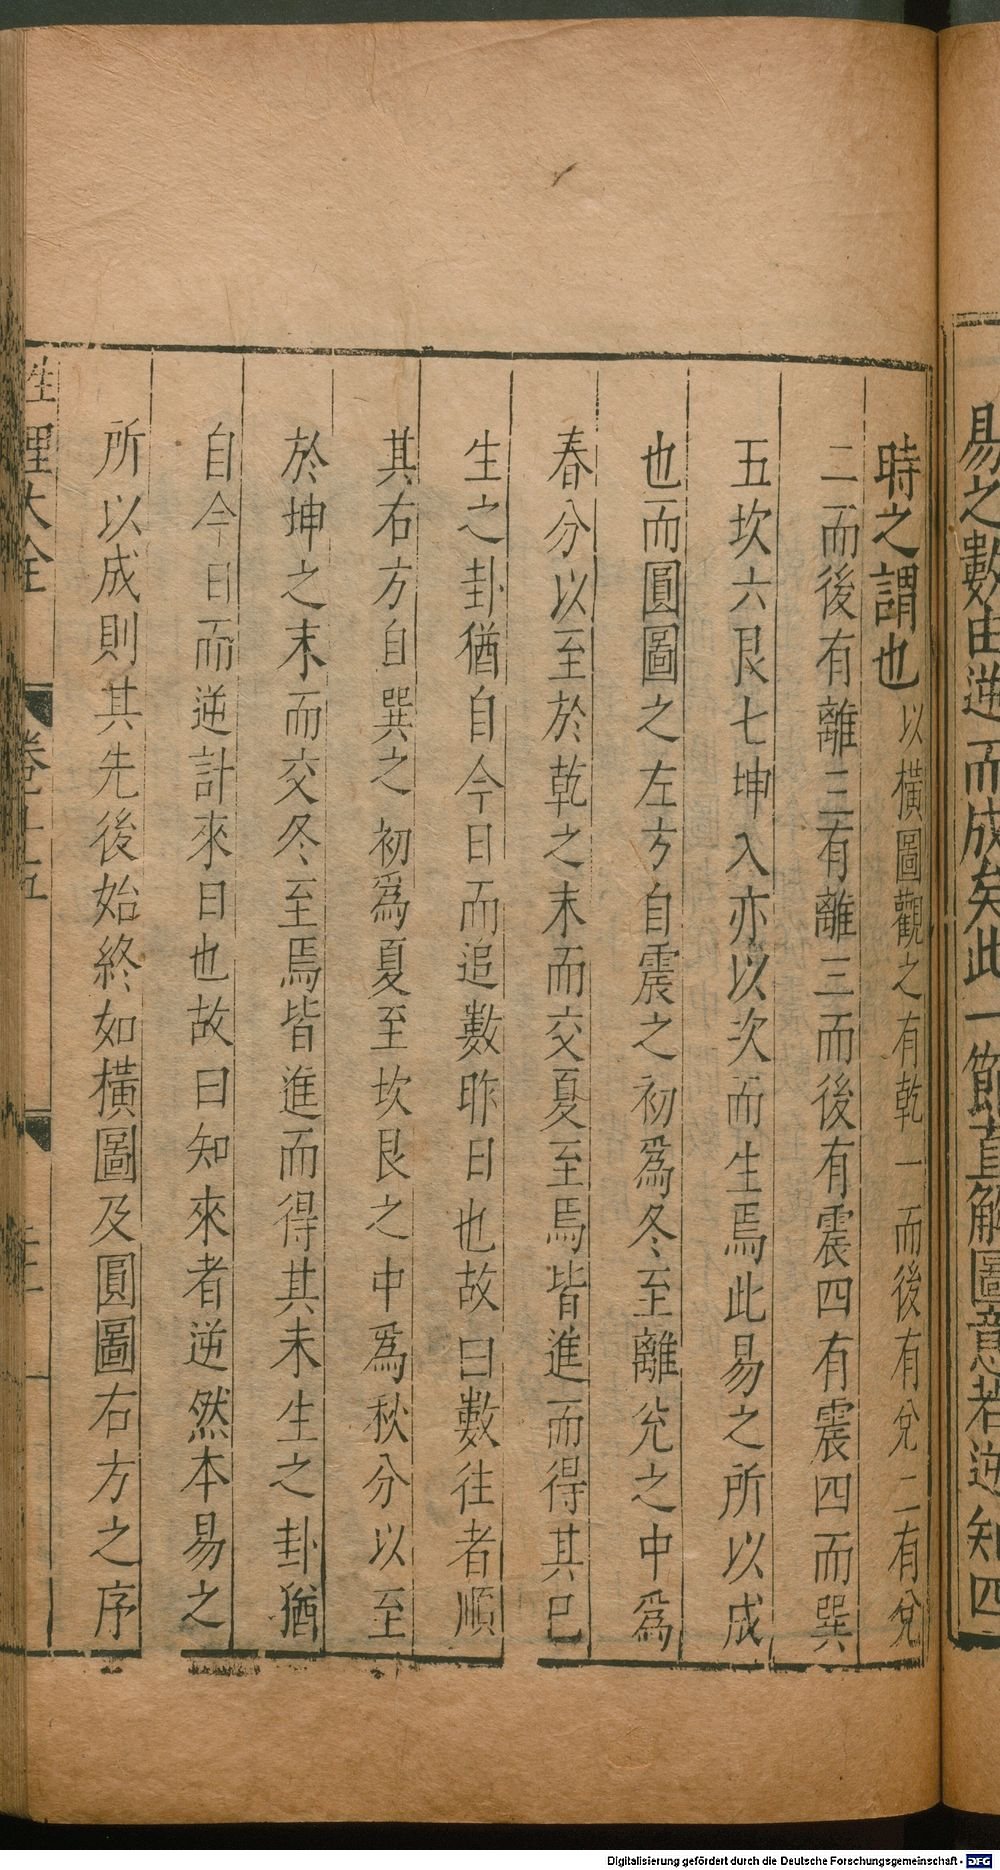 易之數由逆而成矣此一節直解圖意若逆知四
時之謂也以橫圖觀之有乾一而後有兌二有兌
二而後有離三有離三而後有震四有震四而巽
五坎六艮七坤八亦以次而生焉此易之所以成
也而圓圖之左方自震之初爲冬至離兌之中爲
春分以至於乾之末而交夏至焉皆進而得其已
生之卦猶自今日而追數昨日也故曰數往者順
其右方自巽之初爲夏至坎艮之中爲秋分以至
於坤之末而交冬至焉皆進而得其未生之卦猶
自今日而逆計來日也故曰知來者逆然本易之
所以成則其先後始終如橫圖及圓圖右方之序
性理大全
Digitalisierung gefördert durch die Deutsche Forschungsgemeinschaft - DFG